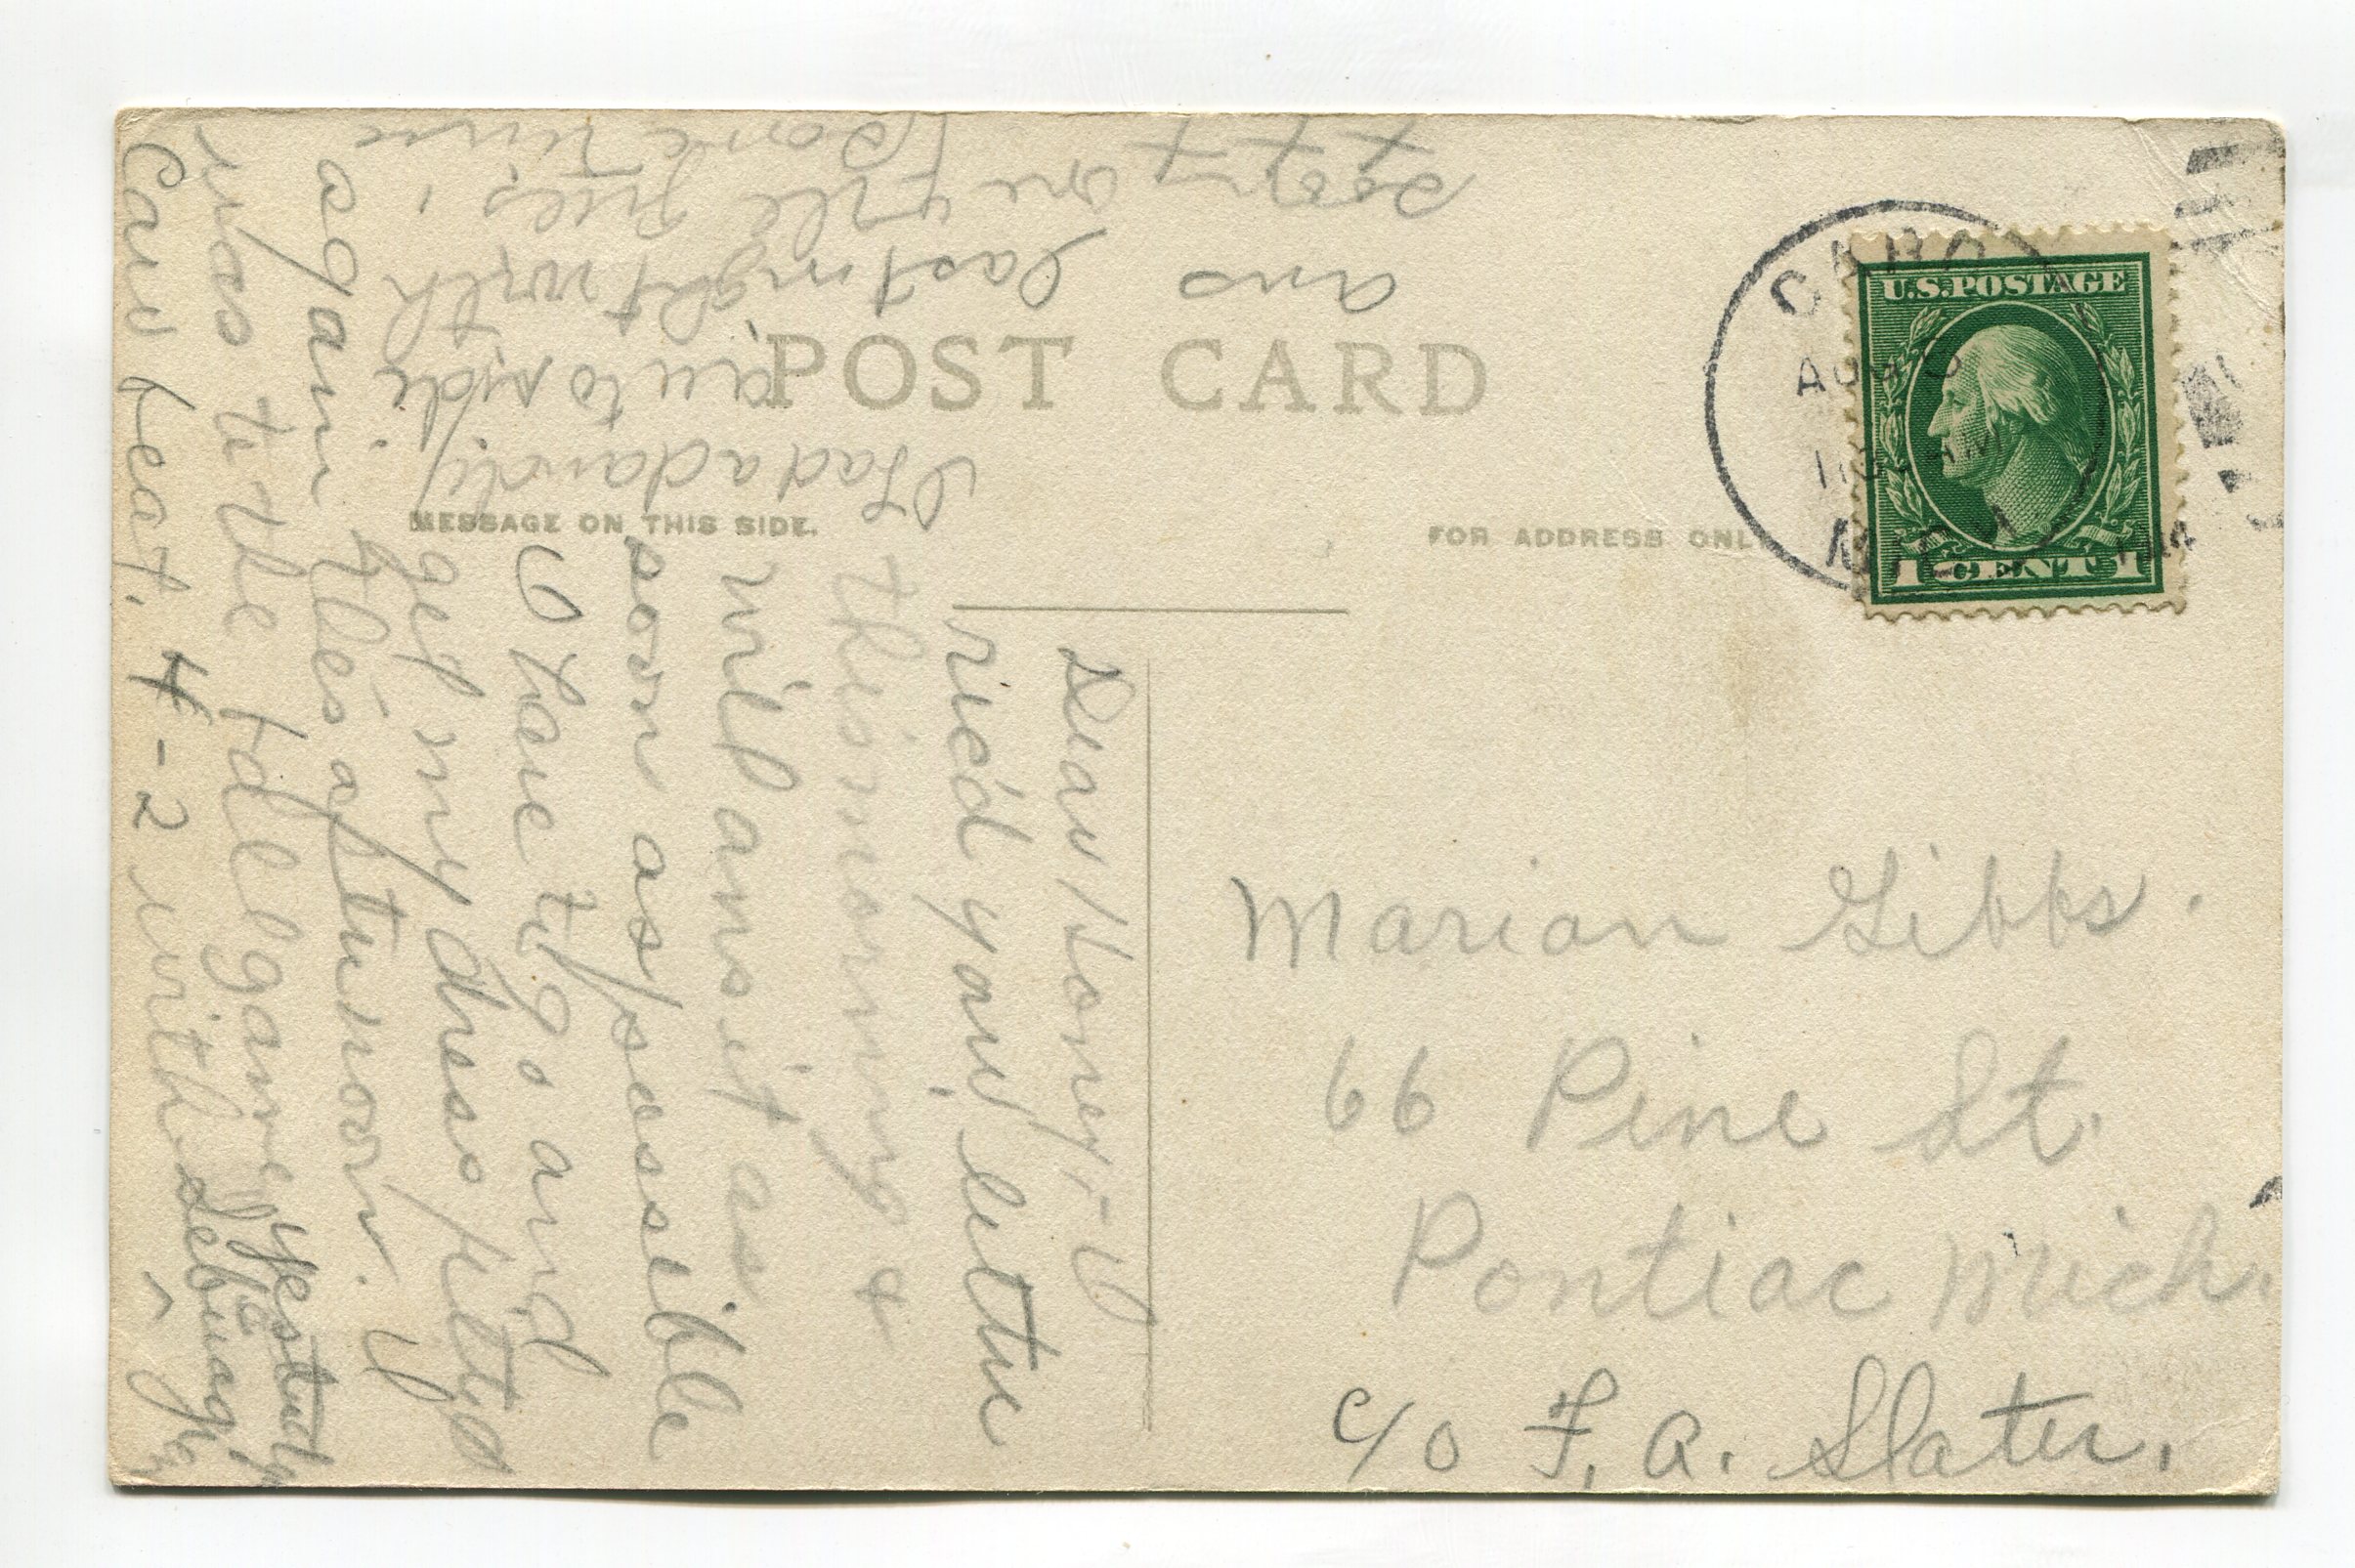 POST CARD
MESSAGE ON THIS SIDE.
FOR ADDRESS ONLY
U.S. POSTAGE
1 CENT 1
CARO
AUG
MICH
Marian Gibbs.
66 Pine St.
Pontiac Mich.
c/o F. A. Slater.
Dear Honey:- I
rec'd your letter
this morning &
will ans it as
soon as possible
I have to go and
get my dress fitted
again this afternoon. I
was to the ball game yesterday
Caro beat. 4-2 with
Had a dandy
auto ride
last night with